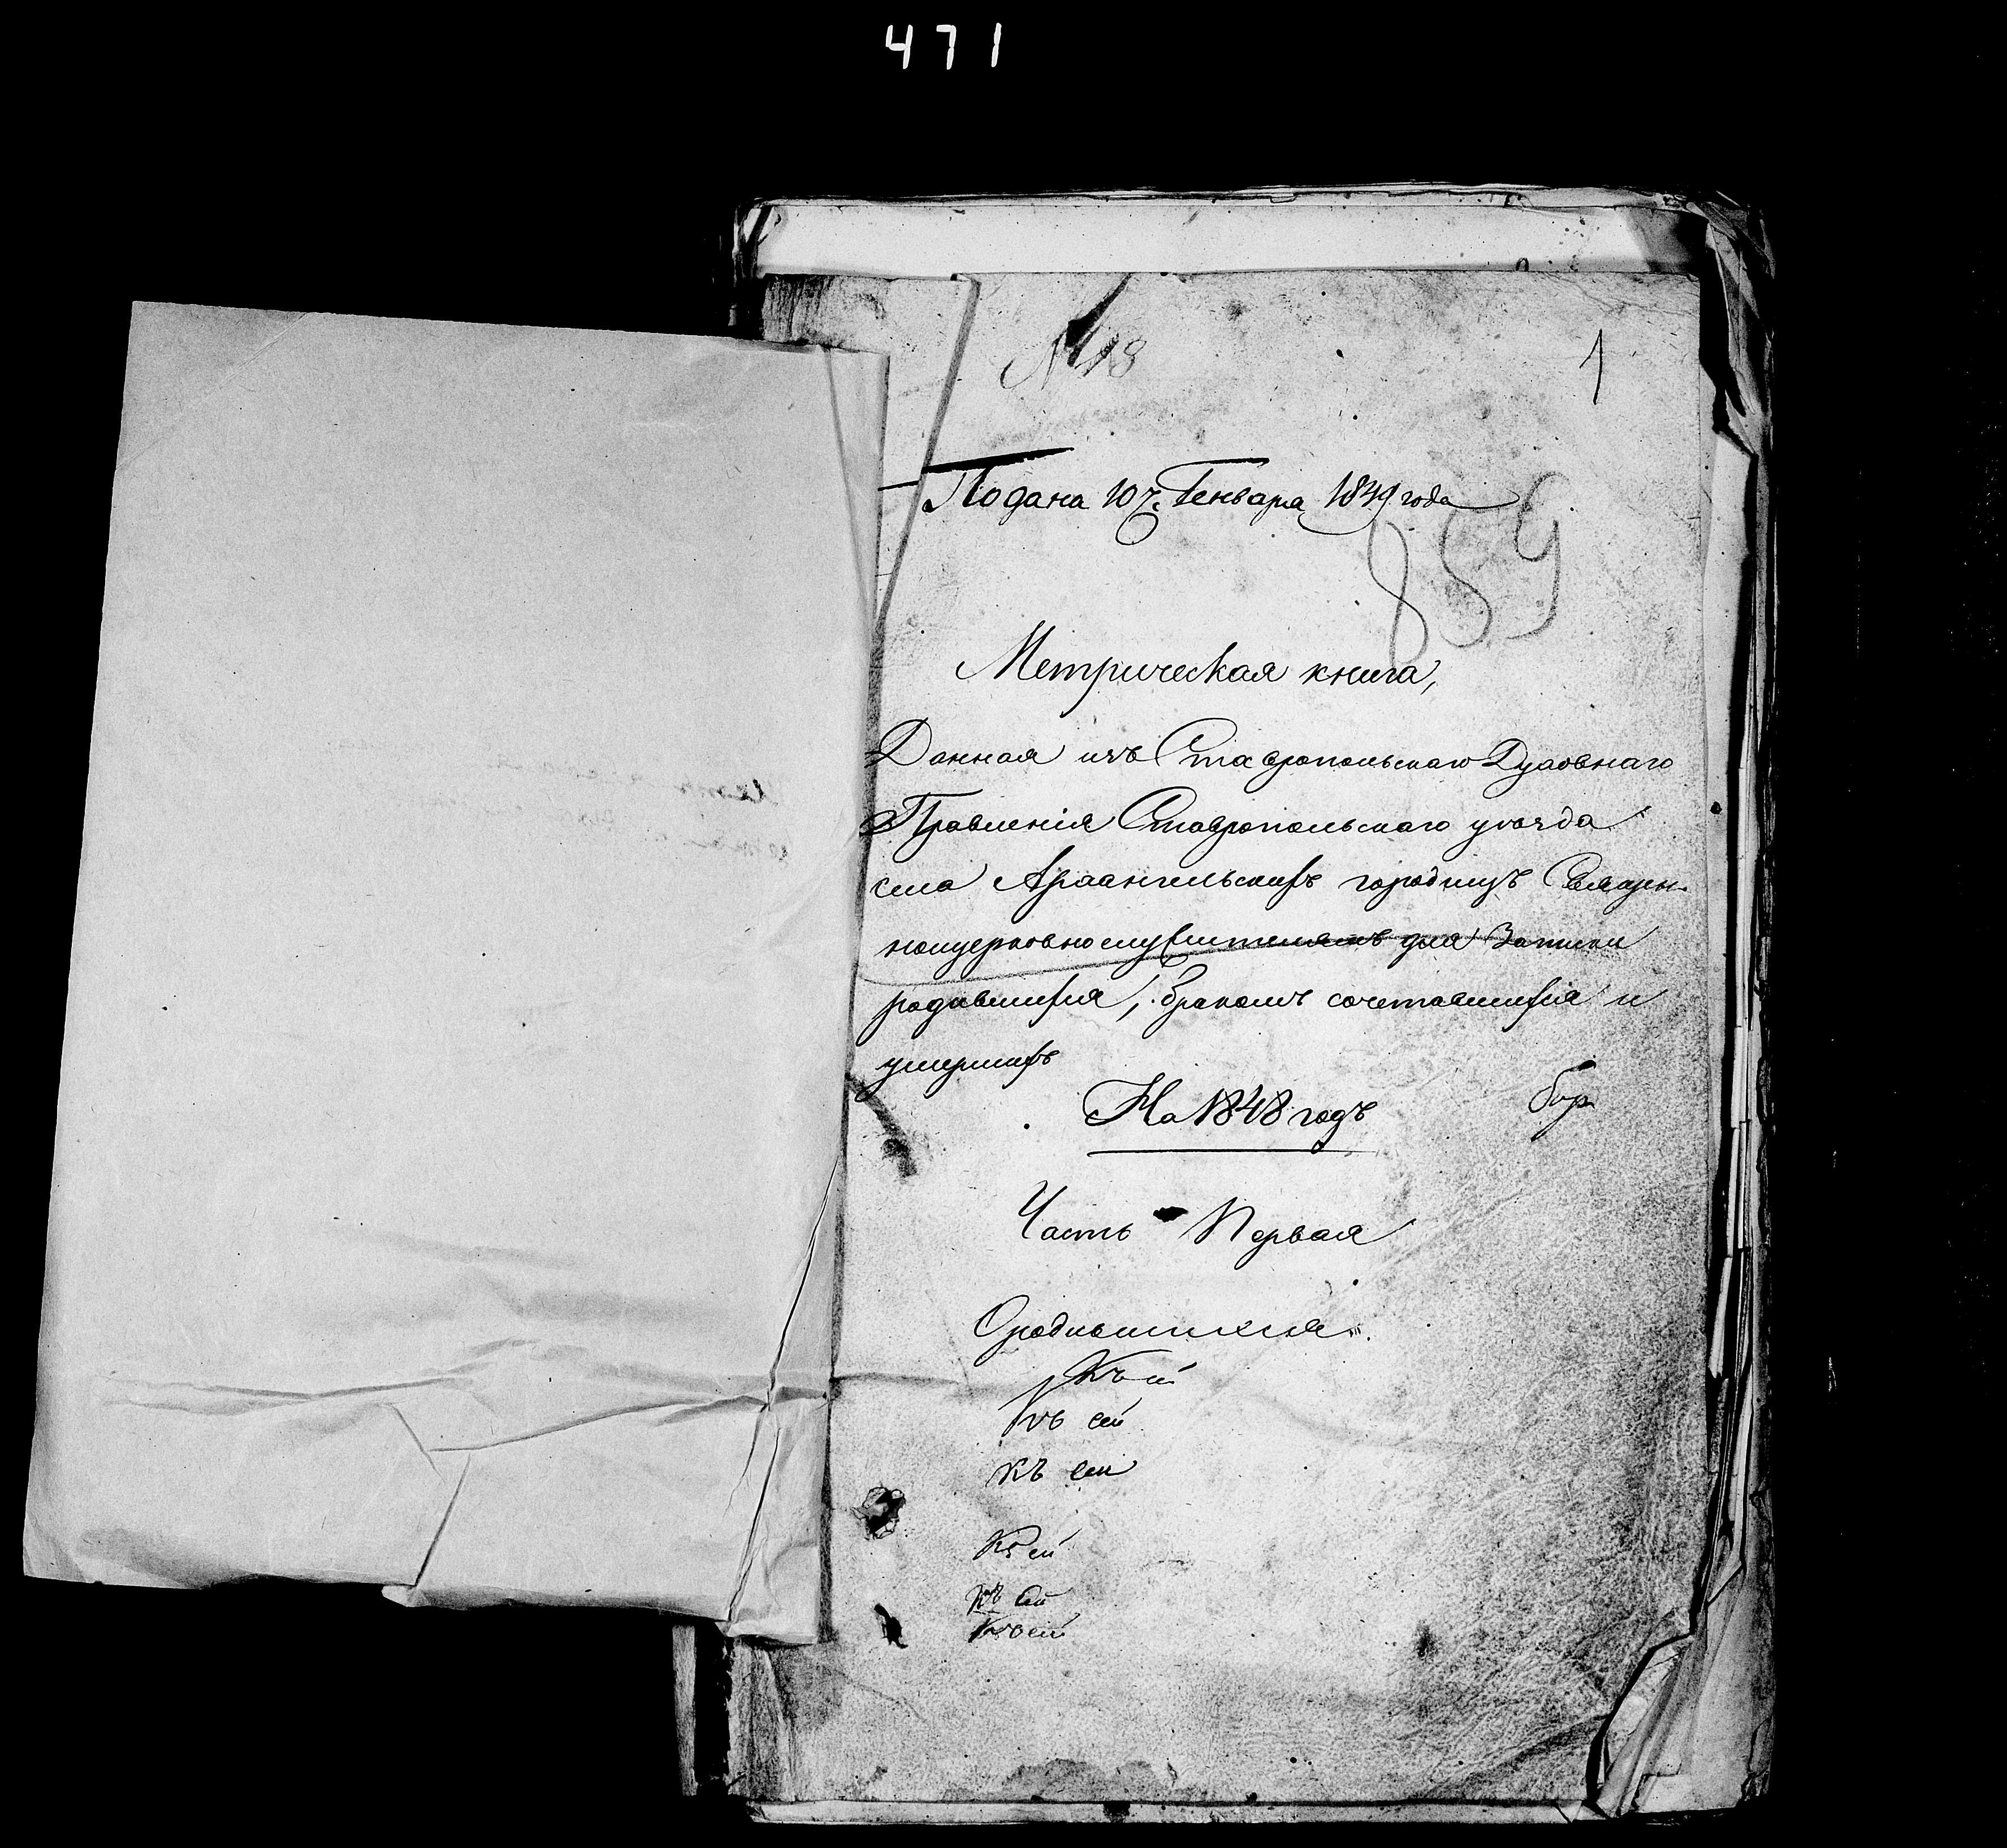 471
№ 18
1
Подана 10 ч. Генваря 1849 года
859
Метрическая книга,
Данная изъ Ставропольскаго Духовнаго
Правленія Ставропольскаго уѣзда
села Архангельскихъ городищъ Священ-
ноцерковнослужителямъ для Записки
родившихся, бракомъ сочетавшихся и
умершихъ
На 1848 годъ
Часть Первая
О родившихся.
Къ сей
къ сей
Къ сей
Къ сей
Къ сей